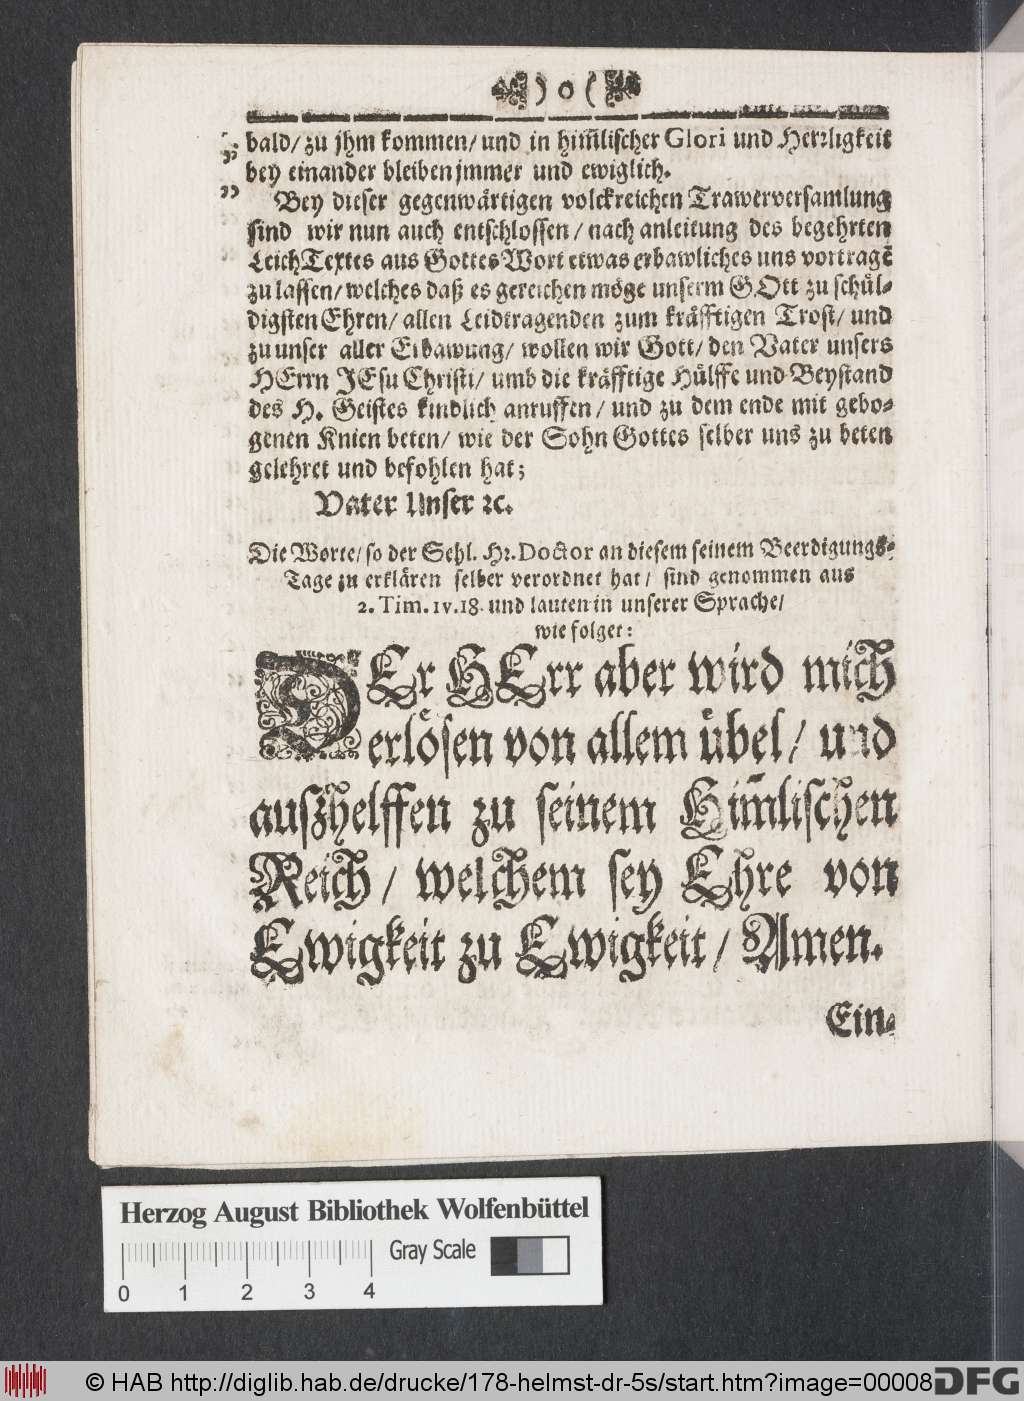 ) o (
bald/ zu jhm kommen/ und in him̃lischer Glori und Herrligkeit
bey einander bleiben jmmer und ewiglich.
Bey dieser gegenwärtigen volckreichen Trawerversamlung
sind wir nun auch entschlossen/ nach anleitung des begehrten
LeichTextes aus Gottes Wort etwas erbawliches uns vortragẽ
zu lassen/ welches daß es gereichen möge unserm GOtt zu schül-
digsten Ehren/ allen Leidtragenden zum kräfftigen Trost/ und
zu unser aller Erbawung/ wollen wir Gott/ den Vater unsers
HErrn JEsu Christi/ umb die kräfftige Hülffe und Beystand
des H. Geistes kindlich anruffen/ und zu dem ende mit gebo-
genen Knien beten/ wie der Sohn Gottes selber uns zu beten
gelehret und befohlen hat;
Vater Unser ꝛc.
Die Worte/ so der Sehl. Hr. Doctor an diesem seinem Beerdigungs-
Tage zu erklären selber verordnet hat/ sind genommen aus
2. Tim. IV. 18. und lauten in unserer Sprache/
wie folget:
DEr HErr aber wird mich
erlösen von allem übel/ und
auszhelffen zu seinem Him̃lischen
Reich/ welchem sey Ehre von
Ewigkeit zu Ewigkeit/ Amen.
Ein-
Herzog August Bibliothek Wolfenbüttel
Gray Scale
0 1 2 3 4
© HAB http://diglib.hab.de/drucke/178-helmst-dr-5s/start.htm?image=00008
DFG